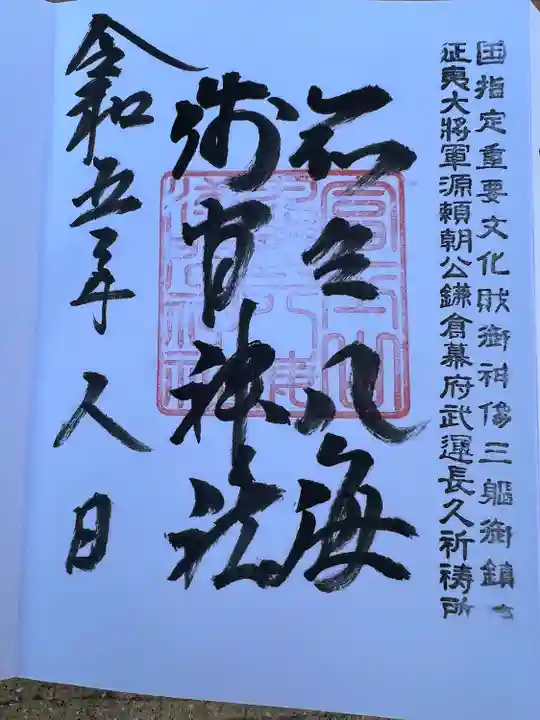 国指定重要文化財御神像三軀御鎮
征夷大將軍源頼朝公鎌倉幕府武運長久祈祷所
八海
浅間神社
令和五年 人日